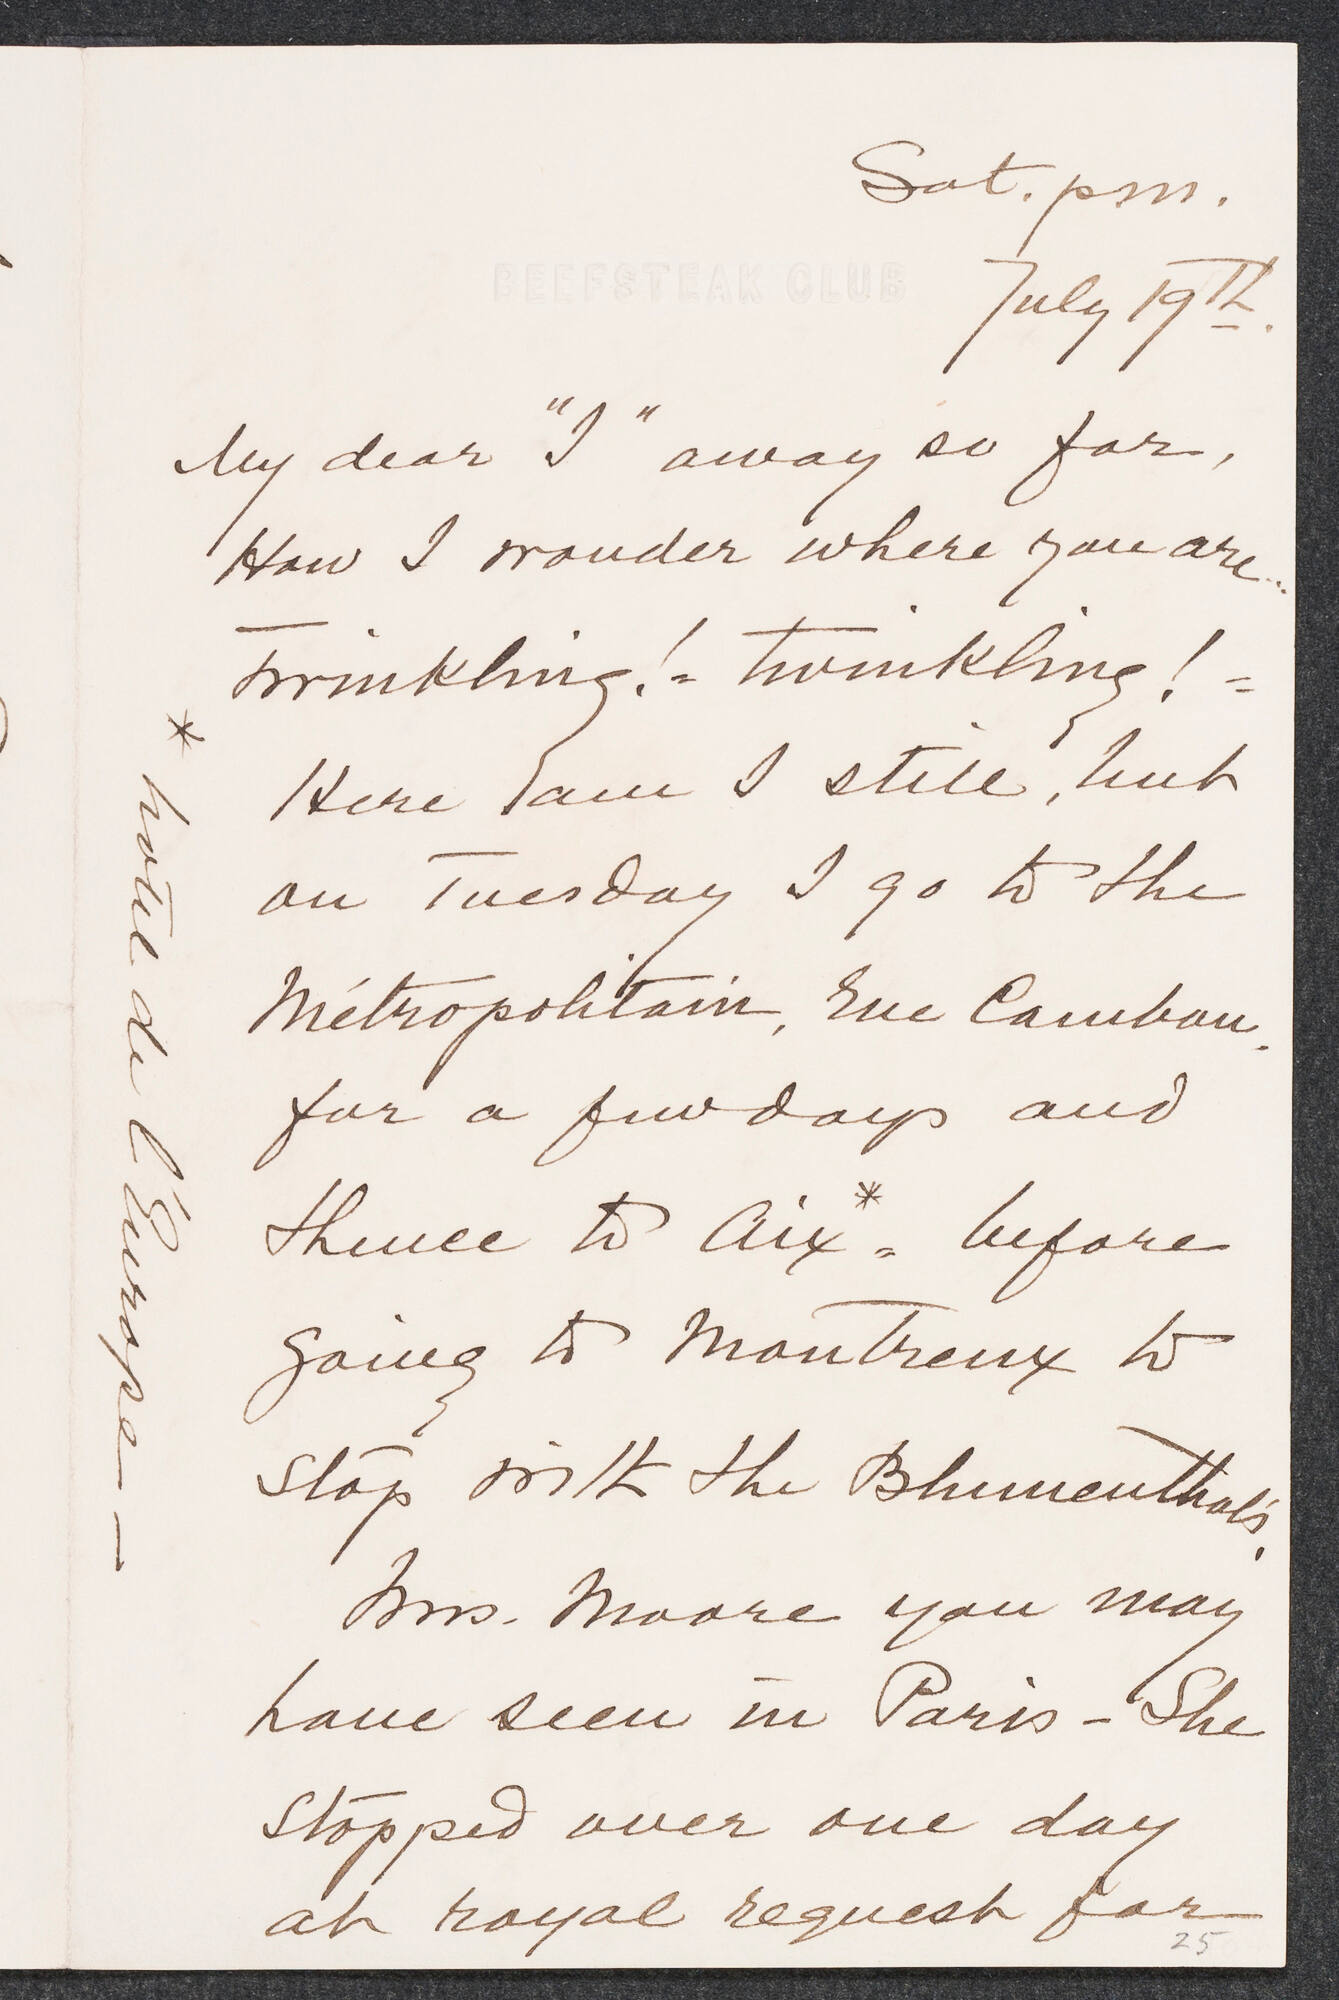 Sat. pm.
BEEFSTEAK CLUB
July 19th.
My dear "I" away so far,
How I wonder where you are..
Twinkling! = Twinkling! =
Here am I still, but
on Tuesday I go to the
Métropolitain, Rue Cambon.
for a few days and
thence to Aix* = before
going to Montreux to
stop with the Blumenthal's.
Mrs. Moore you may
have seen in Paris - She
stopped over one day
at royal request for
25
* hotel de l'Europe —